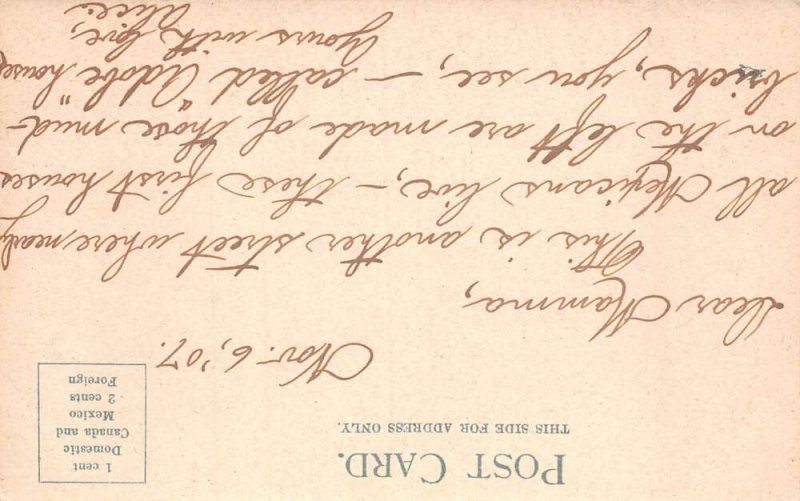 POST CARD.
THIS SIDE FOR ADDRESS ONLY.
1 cent
Domestic
Canada and
Mexico
2 cents
Foreign
Nov. 6, '07.
Dear Mamma,
This is another street where nearly
all Mexicans live, – these first houses
on the left are made of those mud-
bricks, you see, – called "adobe" houses
Yours with love,
Alice.